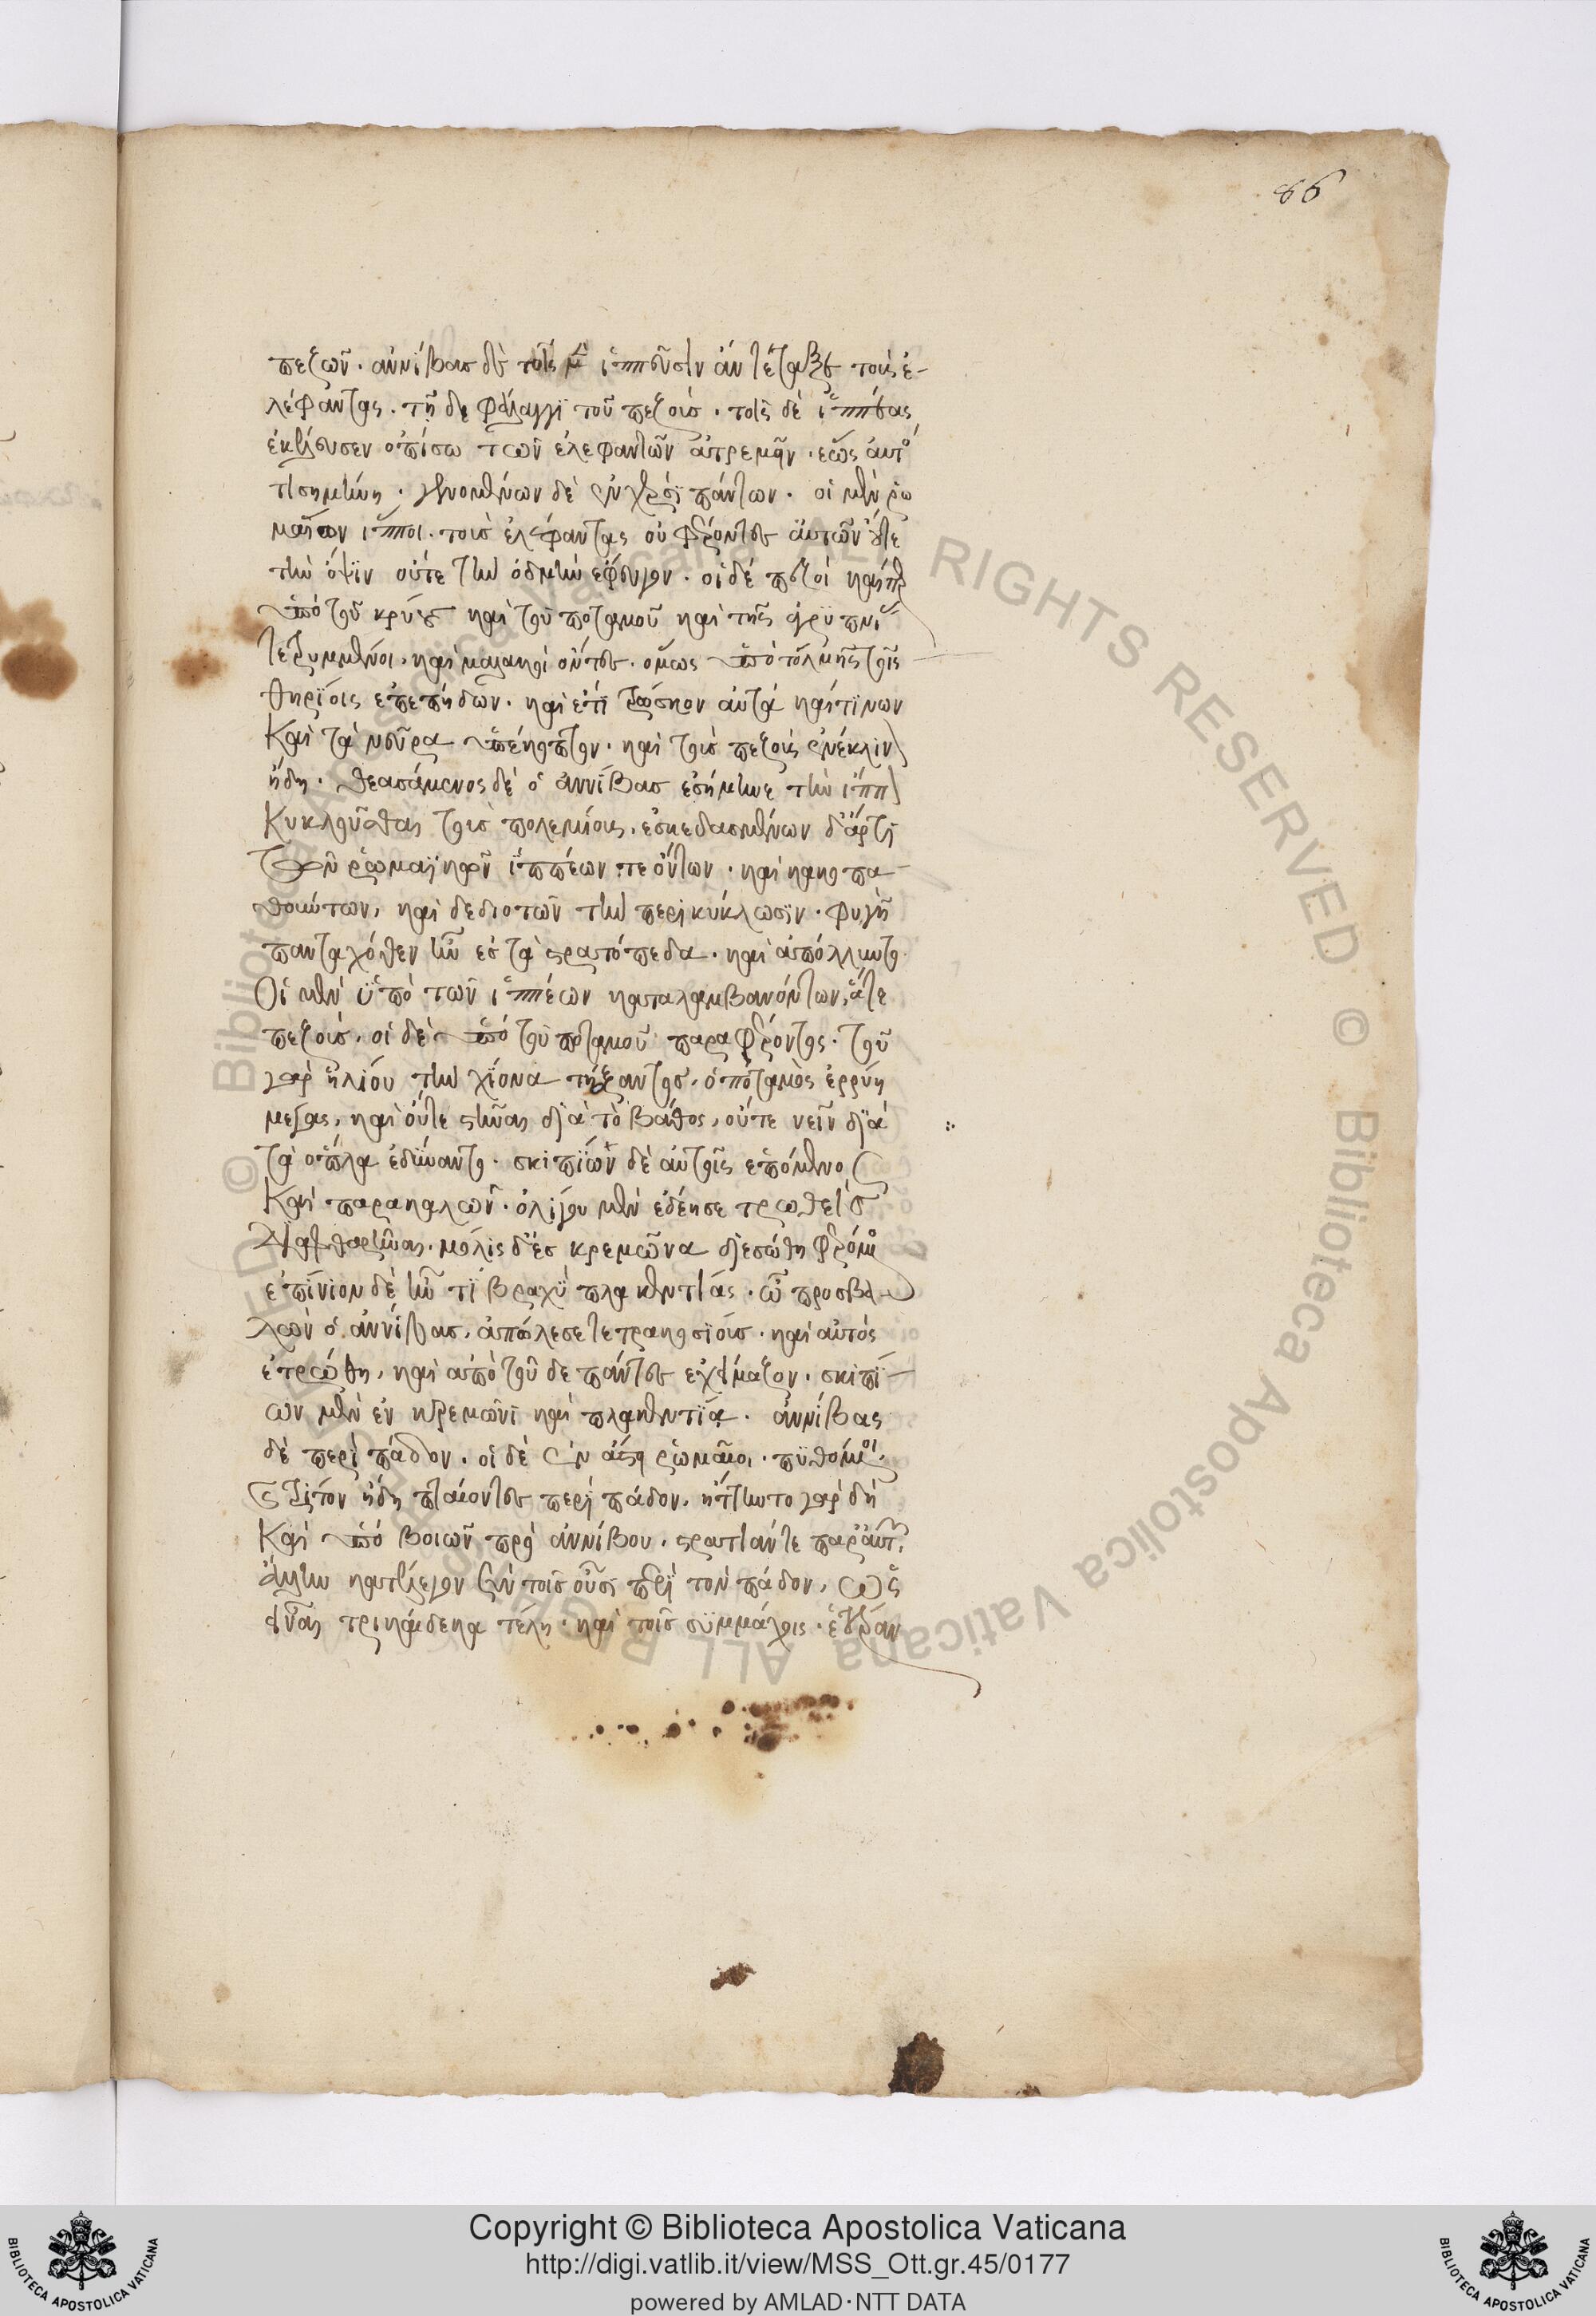 86
πεζῶν. αννίβασ δὲ τοῖς μὲν ἱππεῦσιν ἀντέταξε τοὺς ἐ-
λέφαντας. τῆ δὲ φάλαγγϊ τοῦ πεζοὺσ. τοῖς δὲ ἱππέας
ἐκέλευσεν οπίσω τῶν ἐλεφαντῶν ἀτρεμεῖν. εῶς αυτὸ
τϊ σημείνη. γενομένων δὲ ἐν χερσϊ πάντων. οἱ μὲν ρω
μαίων ἵπποι. τοὺσ ἐλέφαντας οὐ φέροντες αὐτῶν οὔτε
τὴν όψϊν ούτε τὴν ὀδμὴν εφευγον. οἱ δὲ πεζοὶ καίπερ
ὑπὸ τοῦ κρύους καὶ τοῦ ποταμοῦ καὶ τῆς
τετρυμμένοι, καὶ μαλακοὶ ὄντες. ομως ὑπὸ τόλμης τοῖς
θηρϊοις επεπήδων. καὶ ετϊ τρωσκον αυτὰ καὶ τϊνων
Καὶ τὰ νεῦρα ὑπέκοπτον. καὶ τοὺσ πεζοὺς ἐνέκλιν
ἤδη. θεασάμενος δὲ ὁ ἀννίβασ εσήμηνε τὴν ἱππ
Κυκλοῦσθαι τοὺσ πολεμίους. εσκεδασμένων δ'ἄρτϊ
Τῶν ρωμαϊκῶν ϊππέων τε ὄντων. καὶ κακοπα-
θούντων, καὶ δεδιοτῶν τὴν περικύκλωσϊν. φυγὴ
πανταχόθεν ἦν εσ τὰ στρατόπεδα. καὶ απόλλυντο.
Οἱ μὲν ϋπὸ τῶν ἱππέων καταλαμβανόντων, ἅτε
πεζοὺσ. οἱ δὲ ὑπό τοῦ ποταμοῦ παραφέροντος. τοῦ
γαρ ἡλίου τὴν χϊονα τήξαντοσ. ὁ ποταμὸς ἐρρύη
μεγας, καὶ ούτε στῆναι δϊα τὸ βάθος, ούτε νεῖν δϊὰ
τὰ οπλα ἐδύναντο. σκιπϊων δὲ αυτοῖς επόμενος
Καὶ παρακαλων. ὀλίγου μὲν ἐδέησε τρωθεὶσ
Διαφθαρῆναι. μόλις δ'ἐσ κρεμῶνα διεσώθη φερόμενος
επϊνϊον δὲ ἦν τϊ βραχὺ πλακεντίας. ῶ προσβα
λων ὁ αννίβασ. απώλεσε τετρακοσϊουσ. καὶ αυτός
ἐτρώθη, καὶ απὸ τοῦδε πάντες εχείμαζον. σκιπϊ-
ων μὲν ἐν κρεμῶνϊ καὶ πλακεντϊα. αννίβας
δὲ περὶ πάδον. οἱ δὲ ἐν ἄστει ρωμαῖοι. πυθόμενοι,
Τρίτον ἤδη πταίοντες περὶ πάδον. ἥττηντο γαρ δὴ
Καὶ ὑπό βοιῶν πρὸ αννίβου. στρατιάν τε παρ'αυτῶν
ἄλλην κατέλεγον σὺν τοῖσ οὖσι περὶ τον πάδον, ὡς
εἶναι τρισκαίδεκα τέλη. καὶ τοῖσ συμμάχοις.
Copyright © Biblioteca Apostolica Vaticana
http://digi.vatlib.it/view/MSS_Ott.gr.45/0177
powered by AMLAD·NTT DATA
BIBLIOTECA APOSTOLICA VATICANA
BIBLIOTECA APOSTOLICA VATICANA
© Biblioteca Apostolica Vaticana ALL RIGHTS RESERVED © Biblioteca Apostolica Vaticana ALL RIGHTS RESERVED